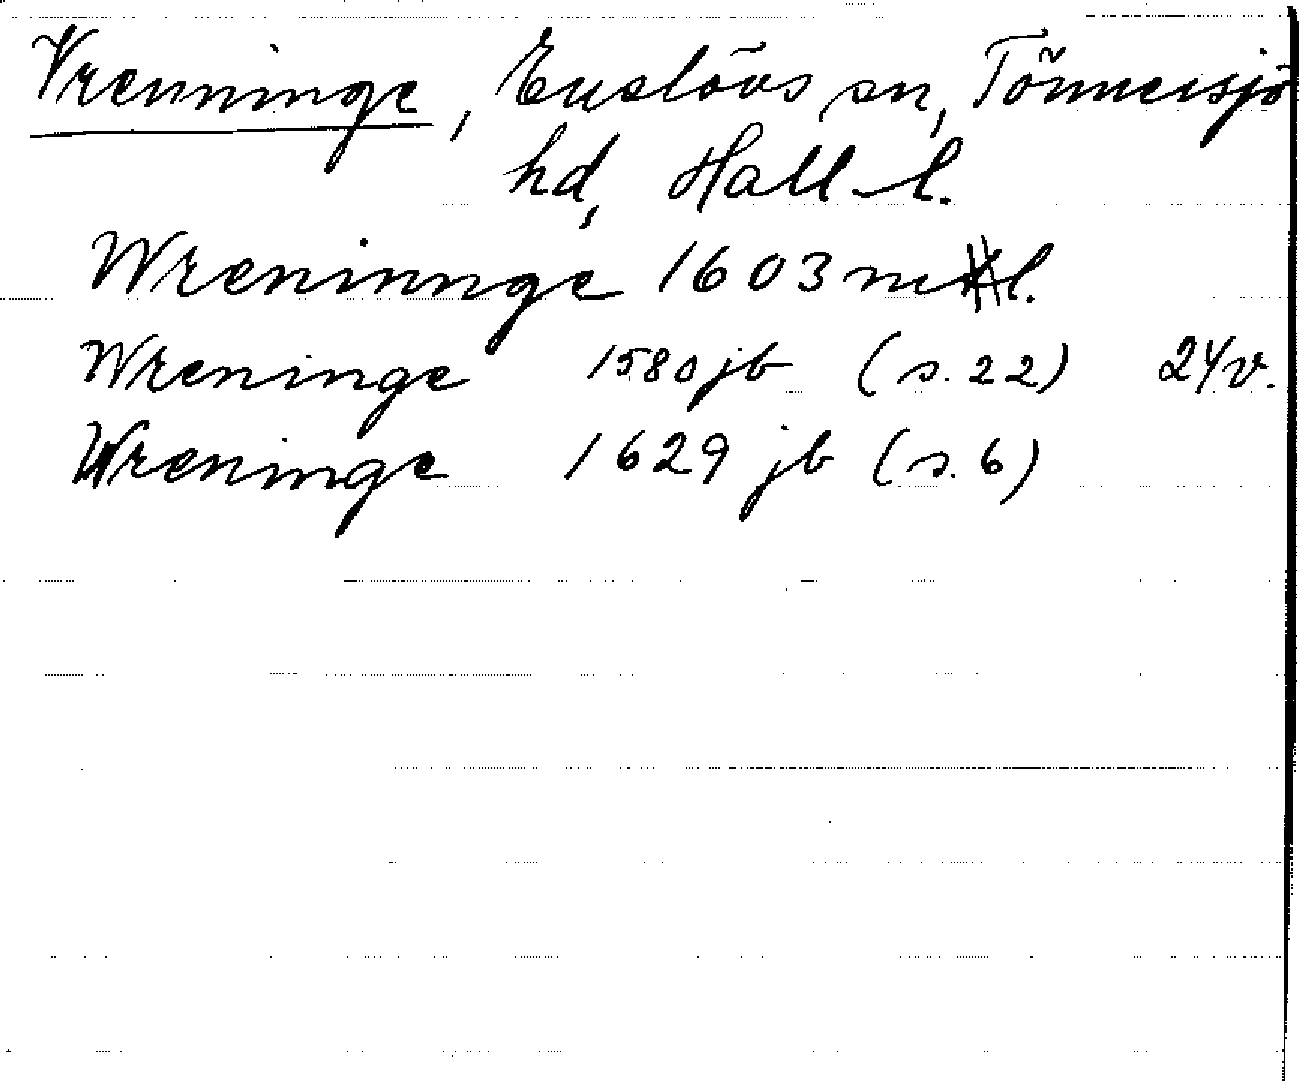 Vrenninge, Enslövs sn, Tönnersjö
hd, Hall-l.
Wreninnge 1603 mtl.
Wreninge 1580 jb (s. 22) 24 v.
Wreninge 1629 jb (s. 6)